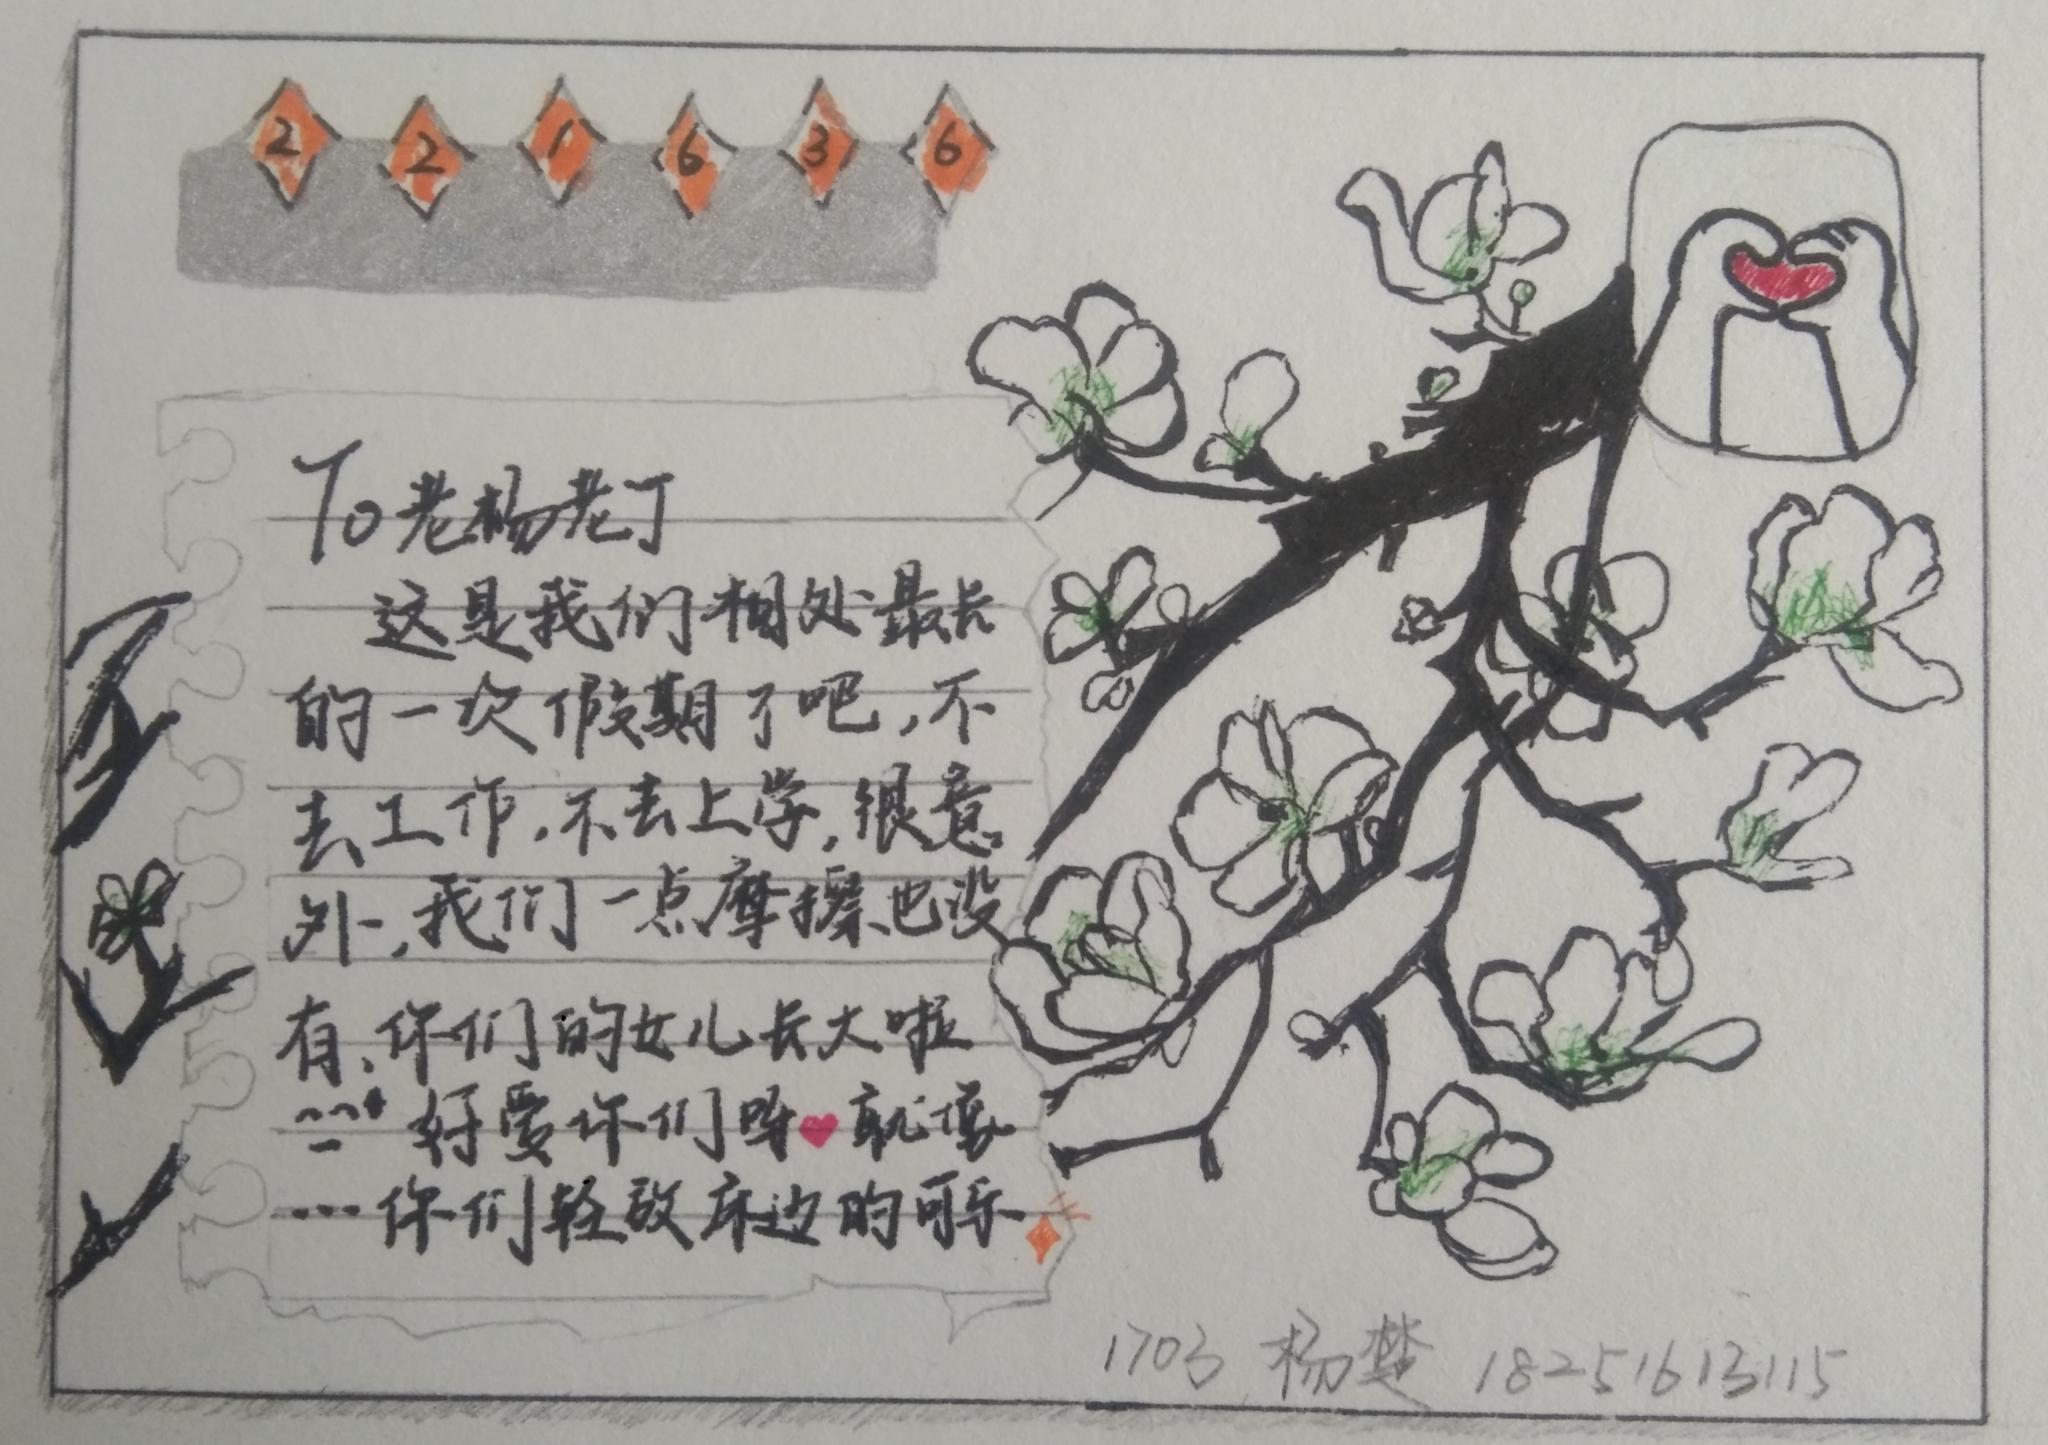 2 2 1 6 3 6
To老杨老丁
这是我们相处最长
的一次假期了吧,不
去工作,不去上学,很意
外,我们一点摩擦也没
有、你们的女儿长大啦
好爱你们呀❤就像
…你们轻放床边的可乐
1703 杨楚 18251613115